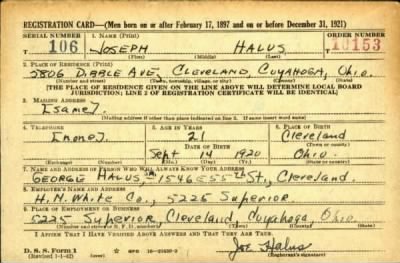 REGISTRATION CARD—(Men born on or after February 17, 1897 and on or before December 31, 1921)
SERIAL NUMBER 1. NAME (Print) ORDER NUMBER
T 106 JOSEPH HALUS T 10153
(First) (Middle) (Last)
2. PLACE OF RESIDENCE (Print)
5806 DIBBLE AVE. CLEVELAND, CUYAHOGA, OHIO.
(Number and street) (Town, township, village, or city) (County) (State)
[THE PLACE OF RESIDENCE GIVEN ON THE LINE ABOVE WILL DETERMINE LOCAL BOARD
JURISDICTION; LINE 2 OF REGISTRATION CERTIFICATE WILL BE IDENTICAL]
3. MAILING ADDRESS
[SAME].
[Mailing address if other than place indicated on line 2. If same insert word same]
4. TELEPHONE 5. AGE IN YEARS 6. PLACE OF BIRTH
[NONE]. 21 Cleveland
DATE OF BIRTH (Town or county)
Sept 14 1920 Ohio.
(Exchange) (Number) (Mo.) (Day) (Yr.) (State or country)
7. NAME AND ADDRESS OF PERSON WHO WILL ALWAYS KNOW YOUR ADDRESS
GEORGE HALUS, 1546 E 55th St., Cleveland.
8. EMPLOYER'S NAME AND ADDRESS
H. N. White Co., 5225 Superior
9. PLACE OF EMPLOYMENT OR BUSINESS
5225 Superior, Cleveland, Cuyahoga, Ohio.
(Number and street or R. F. D. number) (Town) (County) (State)
I AFFIRM THAT I HAVE VERIFIED ABOVE ANSWERS AND THAT THEY ARE TRUE.
D. S. S. Form 1
(Revised 1-1-42) Joe Halus
(Registrant's signature)